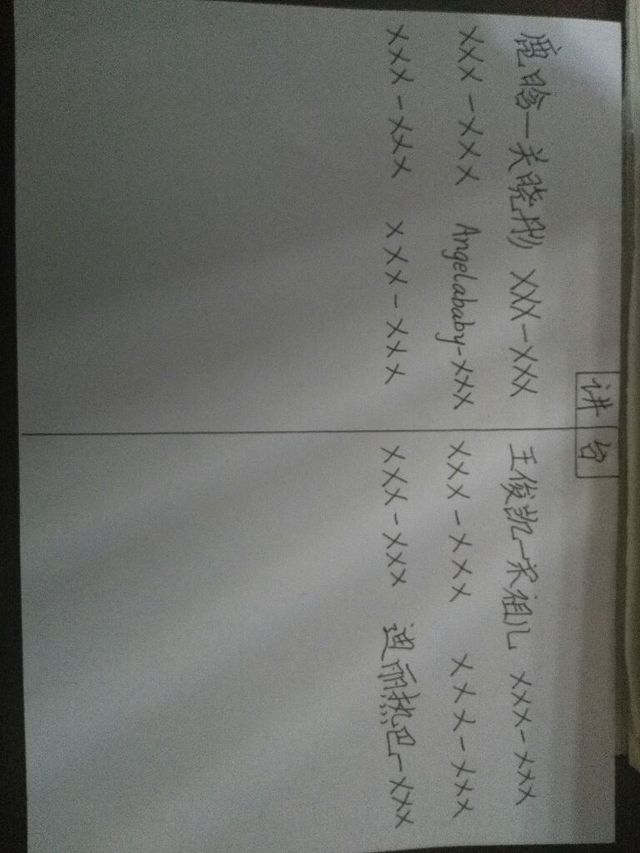 讲台
鹿晗-关晓彤 XXX-XXX 王俊凯-宋祖儿 XXX-XXX
XXX-XXX Angelababy-XXX XXX-XXX XXX-XXX
XXX-XXX XXX-XXX XXX-XXX 迪丽热巴-XXX